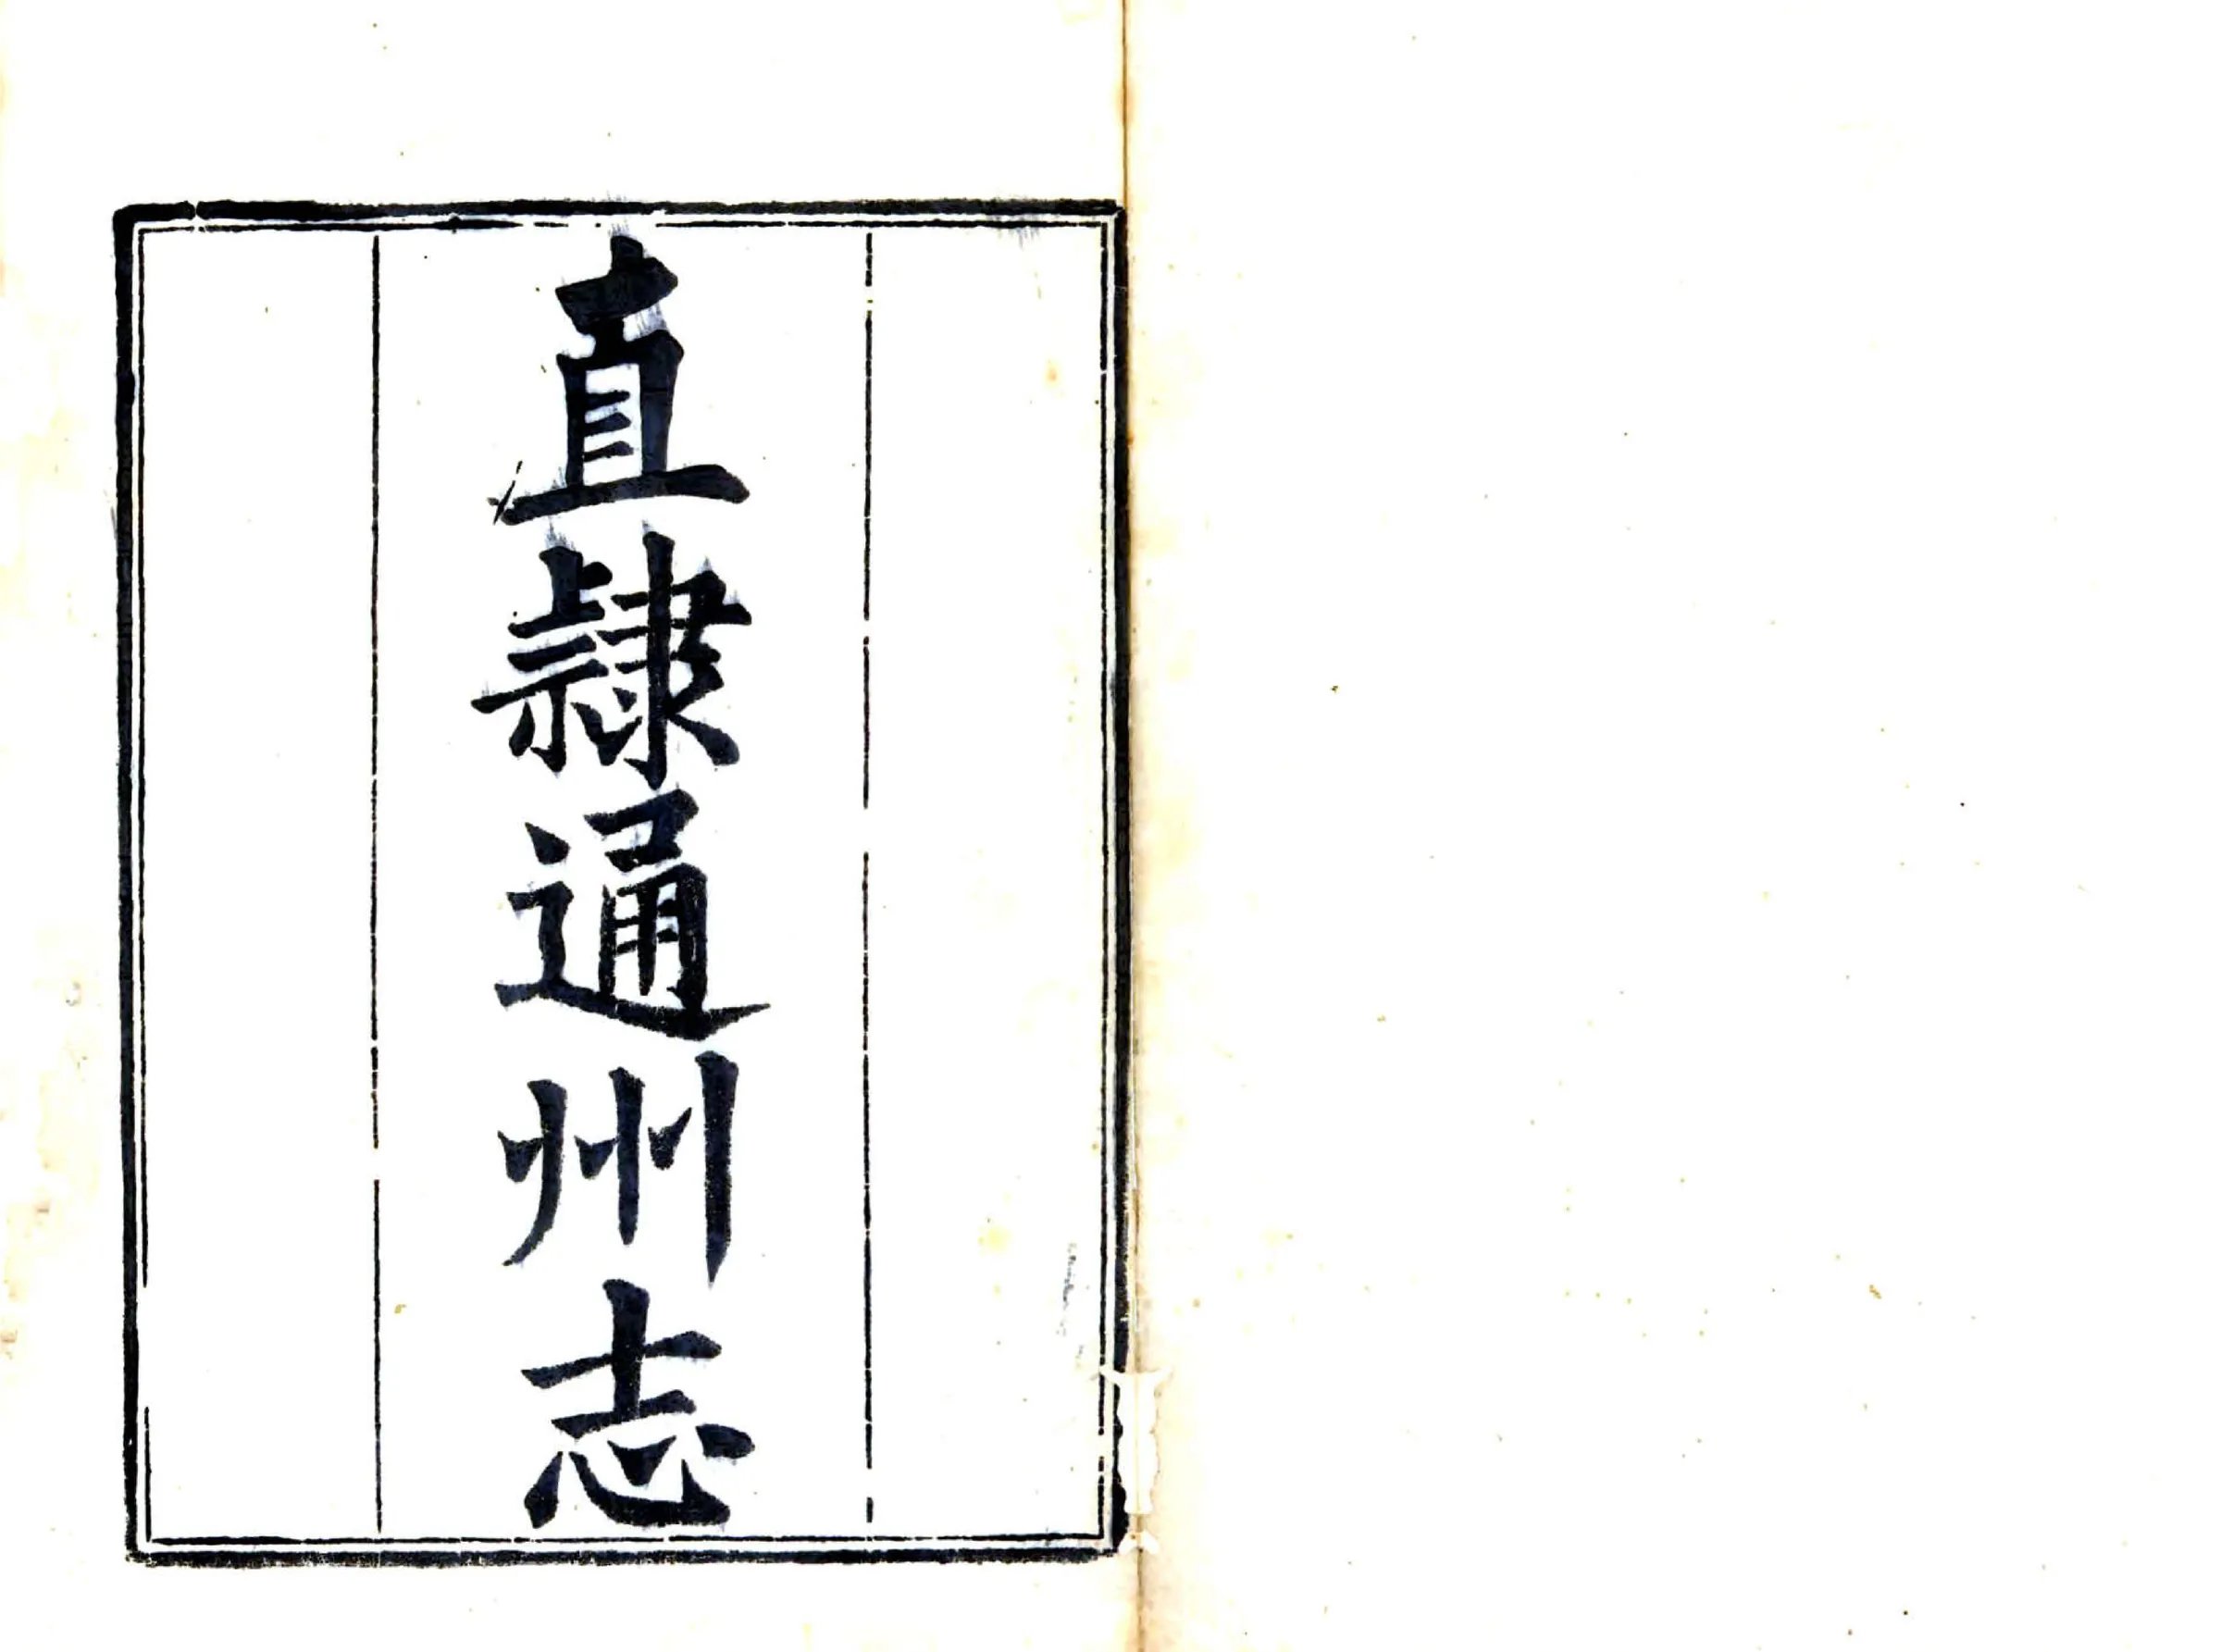 直隸通州志